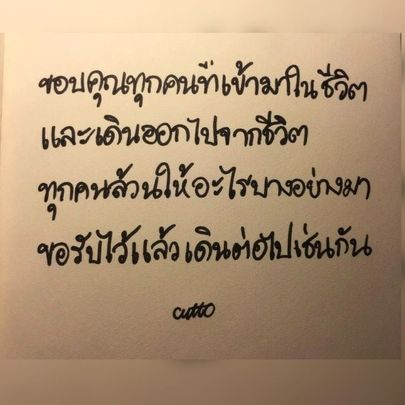 ขอบคุณทุกคนที่เข้ามาในชีวิต
และเดินออกไปจากชีวิต
ทุกคนล้วนให้อะไรบางอย่างมา
ขอรับไว้แล้วเดินต่อไปเช่นกัน
cutto